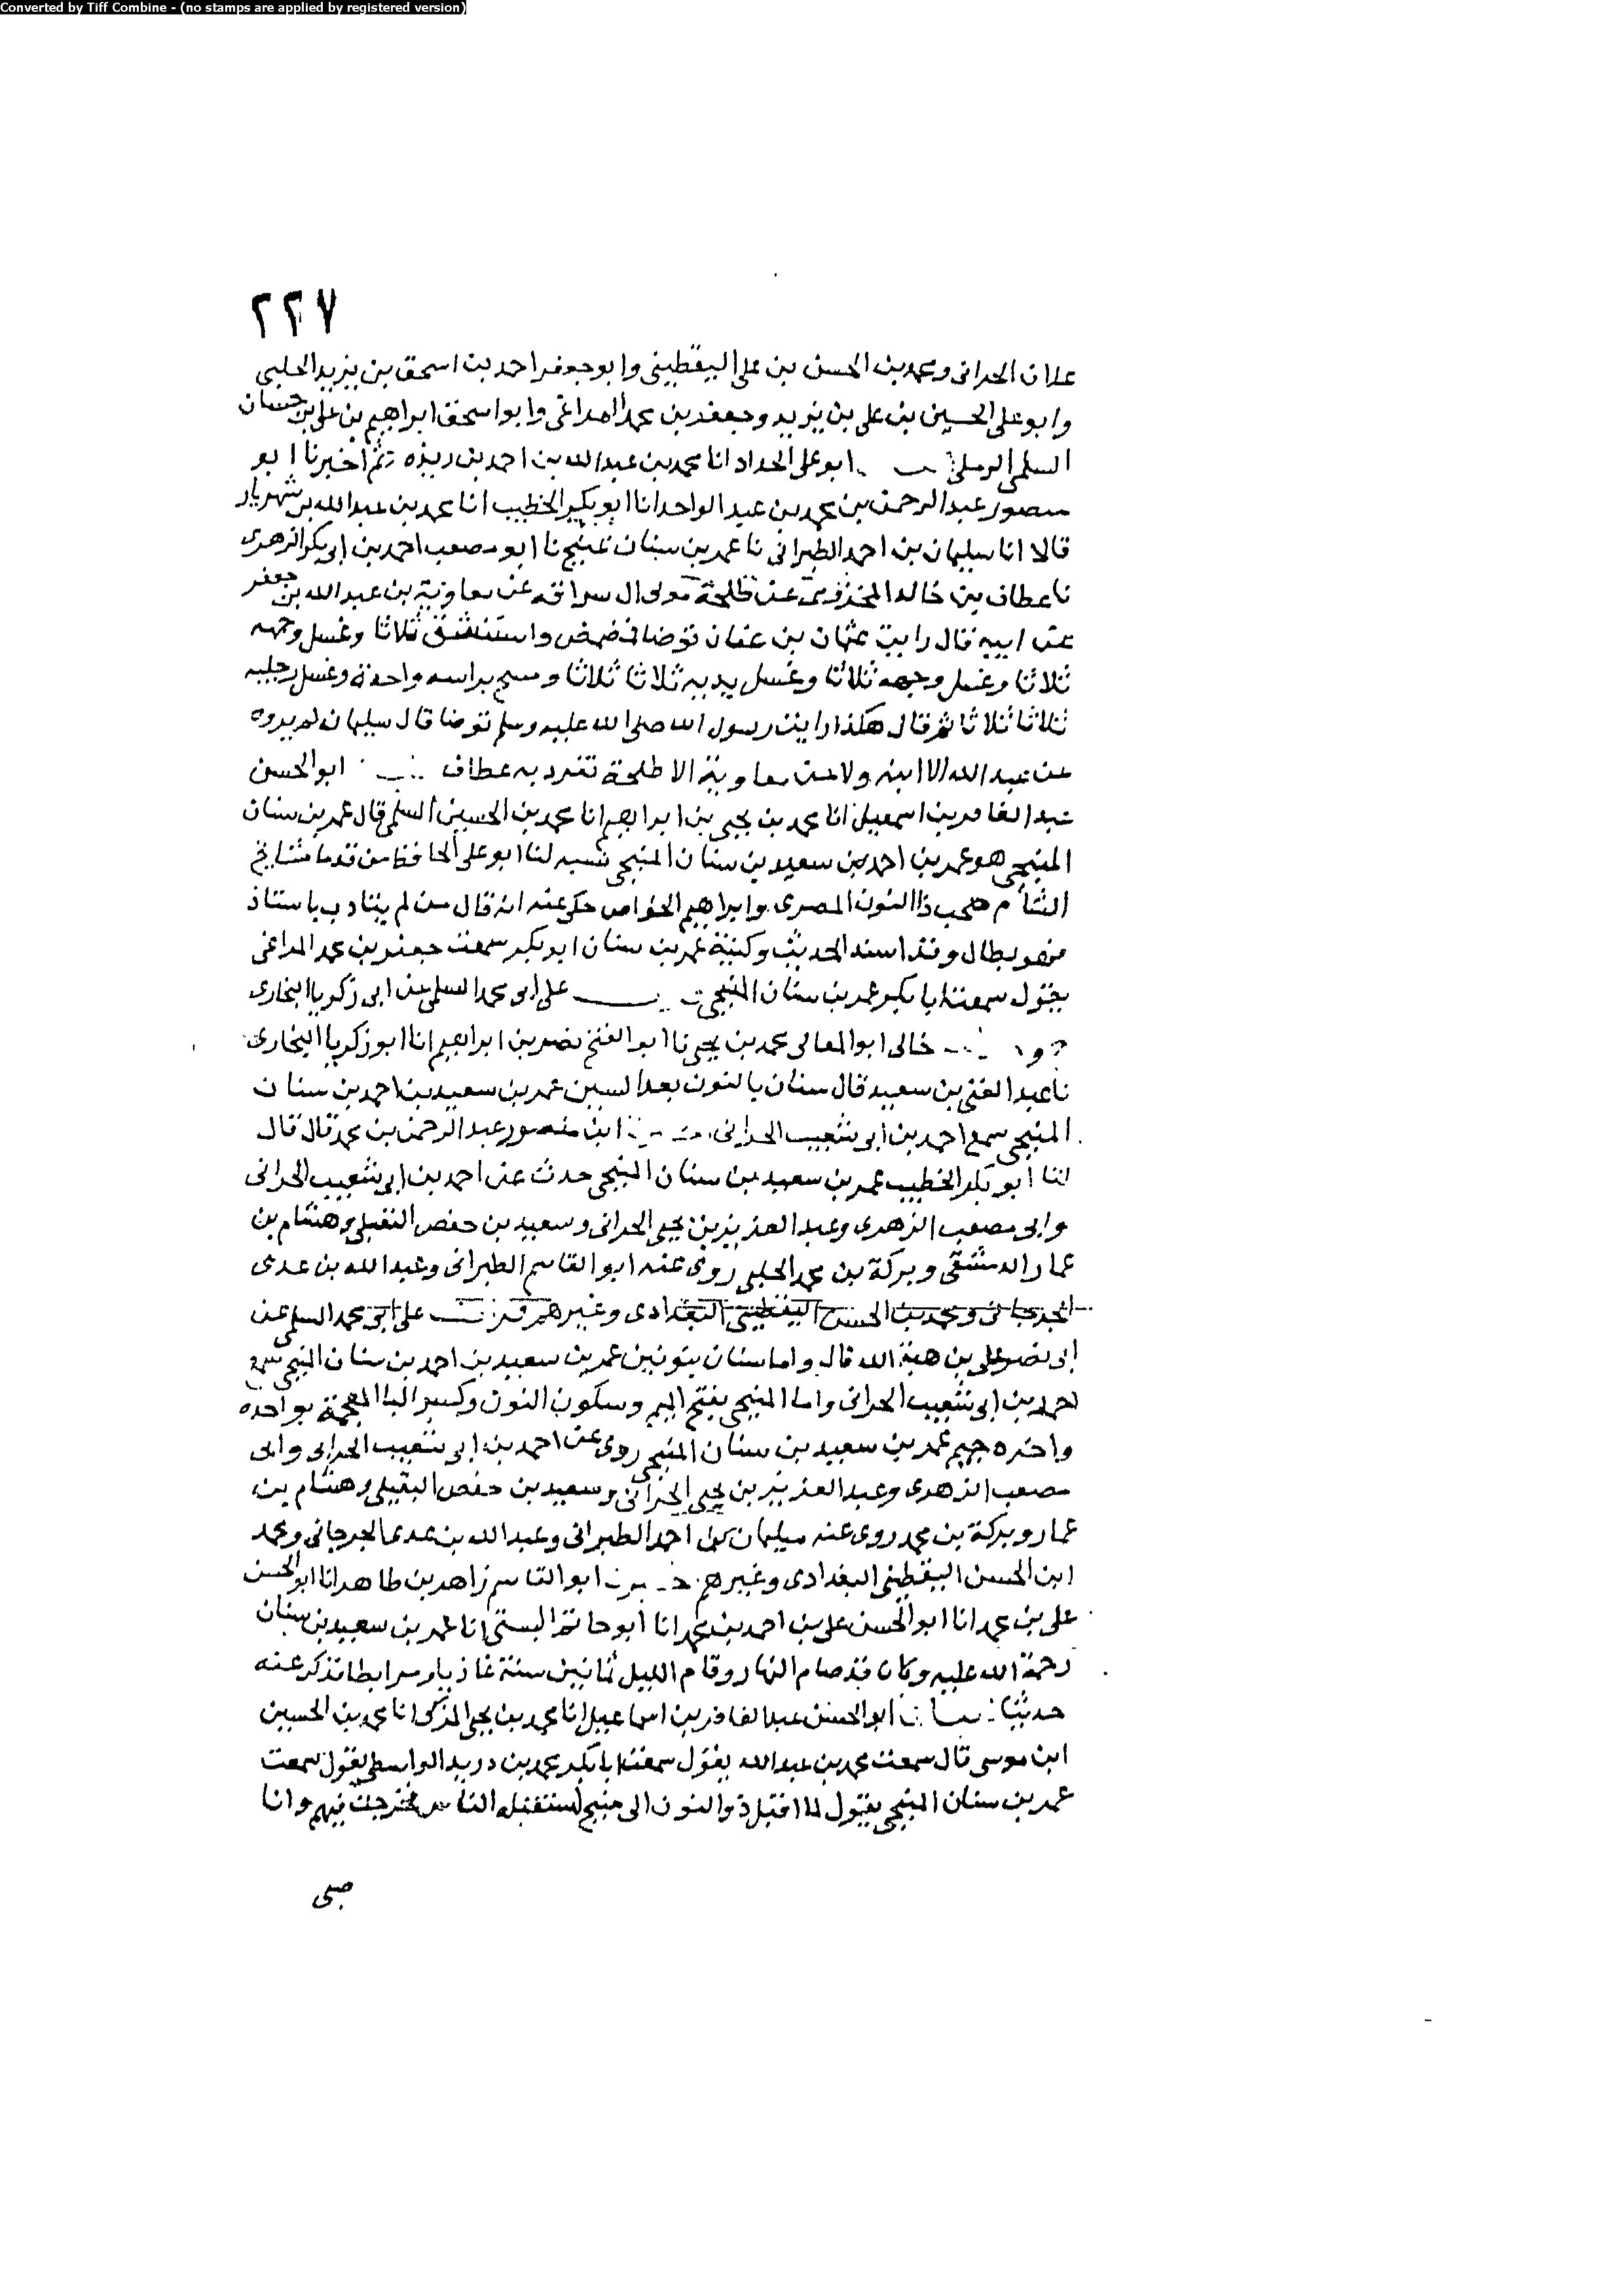 Converted by Tiff Combine - (no stamps are applied by registered version)
٢٢٧
علان الحرانى ومحمد بن الحسن بن على اليقطينى وابو جعفر احمد بن اسحق بن يزيد الحلبى
وابو على الحسين بن على بن يزيد وجعفر بن محمد المراغى وابو اسحق ابراهيم بن على بن حسان
السلمى الرملى ابو على الحداد انا محمد بن عبد الله بن احمد بن ريذه ثم اخبرنا ابو
منصور عبد الرحمن بن محمد بن عبد الواحد انا ابو بكر الخطيب انا محمد بن عبد الله بن شهريار
قالا انا سليمان بن احمد الطبرانى نا عمر بن سنان نا ابو مصعب احمد بن ابى بكر الزهرى
نا عطاف بن خالد المخزومى عن طلحة مولى ال سراقه عن معاوية بن عبد الله بن جعفر
عن ابيه قال رايت عثمان بن عفان توضا فمضمض واستنشق ثلاثا وغسل وجهه
ثلاثا وغسل وجهه ثلاثا وغسل يديه ثلاثا ثلاثا ومسح براسه واحدة وغسل رجليه
ثلاثا ثلاثا ثم قال هكذا رايت رسول الله صلى الله عليه وسلم توضا قال سليمان لم يروه
عن عبد الله الا ابنه ولا عن معاوية الا طلحة تفرد به عطاف ابو الحسن
عبد الغافر بن اسمعيل انا محمد بن يحيى بن ابراهيم انا محمد بن الحسين السلمى قال عمر بن سنان
المنبجى هو عمر بن احمد بن سعيد بن سنان المنبجى نسبه لنا ابو على الحافظ من قدما مشايخ
الشام صحب ذا النون المصرى وابراهيم الخواص حكى عنه انه قال من لم يتادب باستاذ
فهو بطال وقد اسند الحديث وكنية عمر بن سنان ابو بكر سمعت جعفر بن محمد المراغى
يقول سمعت ابا بكر عمر بن سنان المنبجى على ابى محمد السلمى عن ابى زكريا البخارى
خالى ابو المعالى محمد بن يحيى نا ابو الفتح نصر بن ابراهيم انا ابو زكريا البخارى
نا عبد الغنى بن سعيد قال سنان بالنون بعد السين عمر بن سعيد بن احمد بن سنان
المنبجى سمع احمد بن ابى شعيب الحرانى ابن منصور عبد الرحمن بن محمد قال قال
لنا ابو بكر الخطيب عمر بن سعيد بن سنان المنبجى حدث عن احمد بن ابى شعيب الحرانى
وابى مصعب الزهرى وعبد العزيز بن يحيى الحرانى وسعيد بن حفص النفيلى وهشام بن
عمار الدمشقى وبركة بن محمد الحلبى روى عنه ابو القاسم الطبرانى وعبد الله بن عدى
الجرجانى ومحمد بن الحسن اليقطينى البغدادى وغيرهم قرات على ابى محمد السلمى عن
ابى نصر على بن هبة الله قال واما سنان بنونين عمر بن سعيد بن احمد بن سنان المنبجى سمع
احمد بن ابى شعيب الحرانى واما المنبجى بفتح الميم وسكون النون وكسر البا المعجمة بواحده
واخره جيم عمر بن سعيد بن سنان المنبجى روى عن احمد بن ابى شعيب الحرانى وابى
مصعب الزهرى وعبد العزيز بن يحيى الحرانى وسعيد بن حفص النفيلى وهشام بن
عمار وبركة بن محمد روى عنه سليمان بن احمد الطبرانى وعبد الله بن عدى الجرجانى ومحمد
ابن الحسن اليقطينى البغدادى وغيرهم ابو القاسم زاهر بن طاهر انا ابو الحسن
على بن محمد انا ابو الحسن على بن احمد بن محمد انا ابو حاتم البستى انا عمر بن سعيد بن سنان
رحمة الله عليه وكان قد صام النهار وقام الليل ثمانين سنة غازيا ومرابطا فذكر عنه
حديثا ابو الحسن عبد الغافر بن اسماعيل انا محمد بن يحيى المزكى انا محمد بن الحسين
ابن موسى قال سمعت محمد بن عبد الله يقول سمعت ابا بكر محمد بن دريد الواسطى يقول سمعت
عمر بن سنان المنبجى يقول لما اقبل ذو النون الى منبج استقبله الناس فخرجت فيهم وانا
صبى